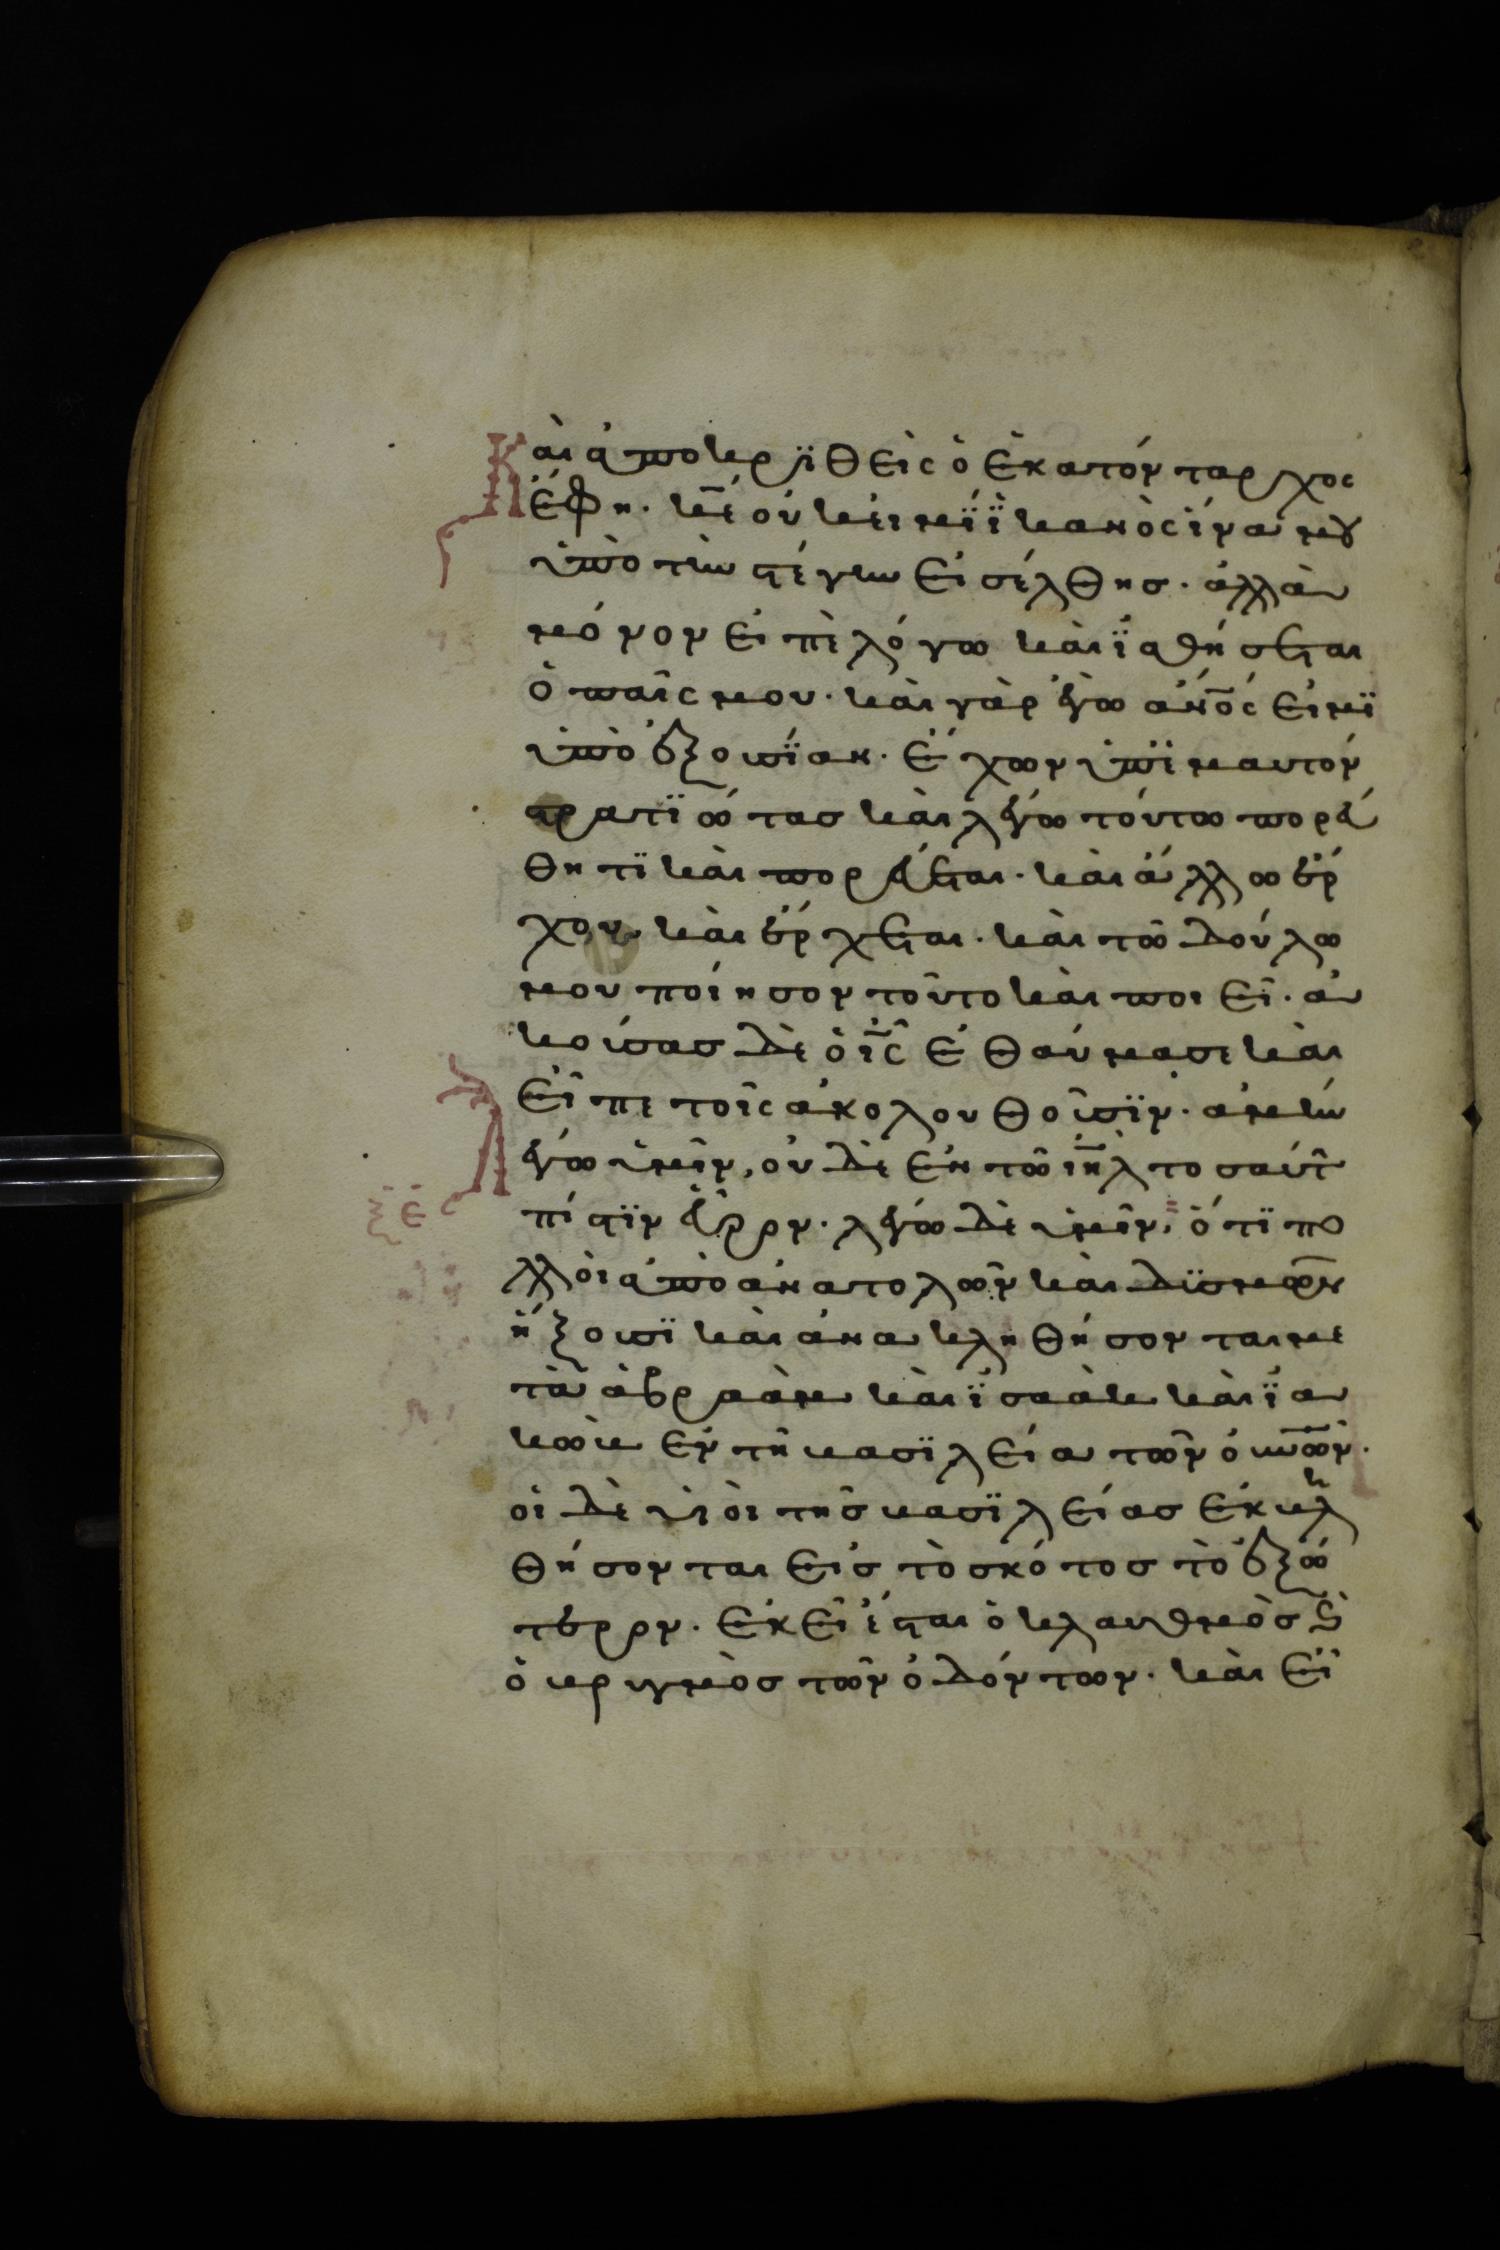 Και ἀποκριθεὶς ὁ ἑκατόνταρχος
ἔφη· κ̅ε οὐκ εἰμὶ ἱκανὸς ἵνα μου
ὑπὸ τὴν στέγην εἰσέλθης· ἀλλὰ
μόνον εἰπὲ λόγω καὶ ἰαθήσεται
ὁ παῖς μου· καὶ γὰρ ἐγὼ ἀν̅ος εἰμϊ
ὑπὸ ἐξουσίαν· ἔχων ὑπ' ἐμαυτὸν
στρατιώτας καὶ λέγω τούτω πορεύ
θητϊ καὶ πορεύεται· καὶ ἄλλω ἔρ
χου καὶ ἔρχεται· καὶ τῶ δούλω
μου ποίησον τοῦτο καὶ ποιεῖ· ἀ
κούσας δὲ ὁ ι̅ς ἐθαύμασε καὶ
εἶπε τοῖς ἀκολουθοῦσϊν· ἀμὴν
λέγω ὑμῖν, οὐδὲ ἐν τῶ ιη̅λ τοσαύτ
πίστϊν εὗρον· λέγω δὲ ὑμῖν, ὅτϊ πο
λλοὶ ἀπὸ ἀνατολῶν καὶ δϊσμῶν
ἥξουσϊ καὶ ἀνακληθήσονται με
τὰ ἀβραὰμ καὶ ἰσαὰκ καὶ ἰα
κὼβ ἐν τῆ βασϊλεία τῶν οὐν̅ων·
οἱ δὲ υἱοὶ τῆς βασϊλείας ἐκβλη
θήσονται εἰς τὸ σκότος τὸ ἐξώ
τερον· ἐκεῖ ἔσται ὁ κλαυθμὸς ϗ
ὁ βρυγμὸς τῶν ὀδόντων· καὶ εἶ
ξε